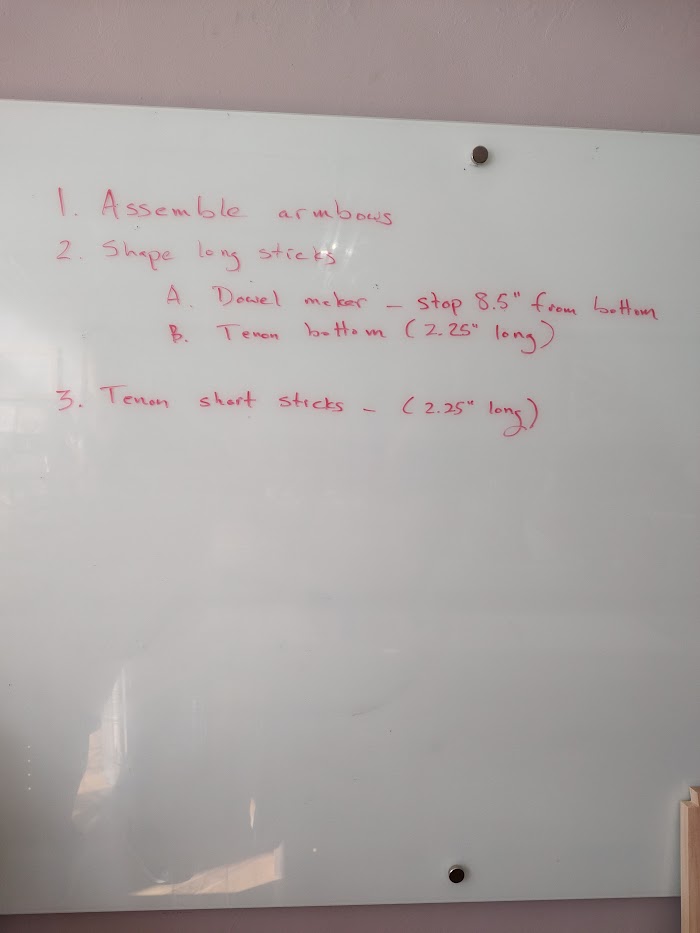 1. Assemble armbows
2. Shape long sticks
A. Dowel maker - stop 8.5" from bottom
B. Tenon bottom (2.25" long)
3. Tenon short sticks - (2.25" long)